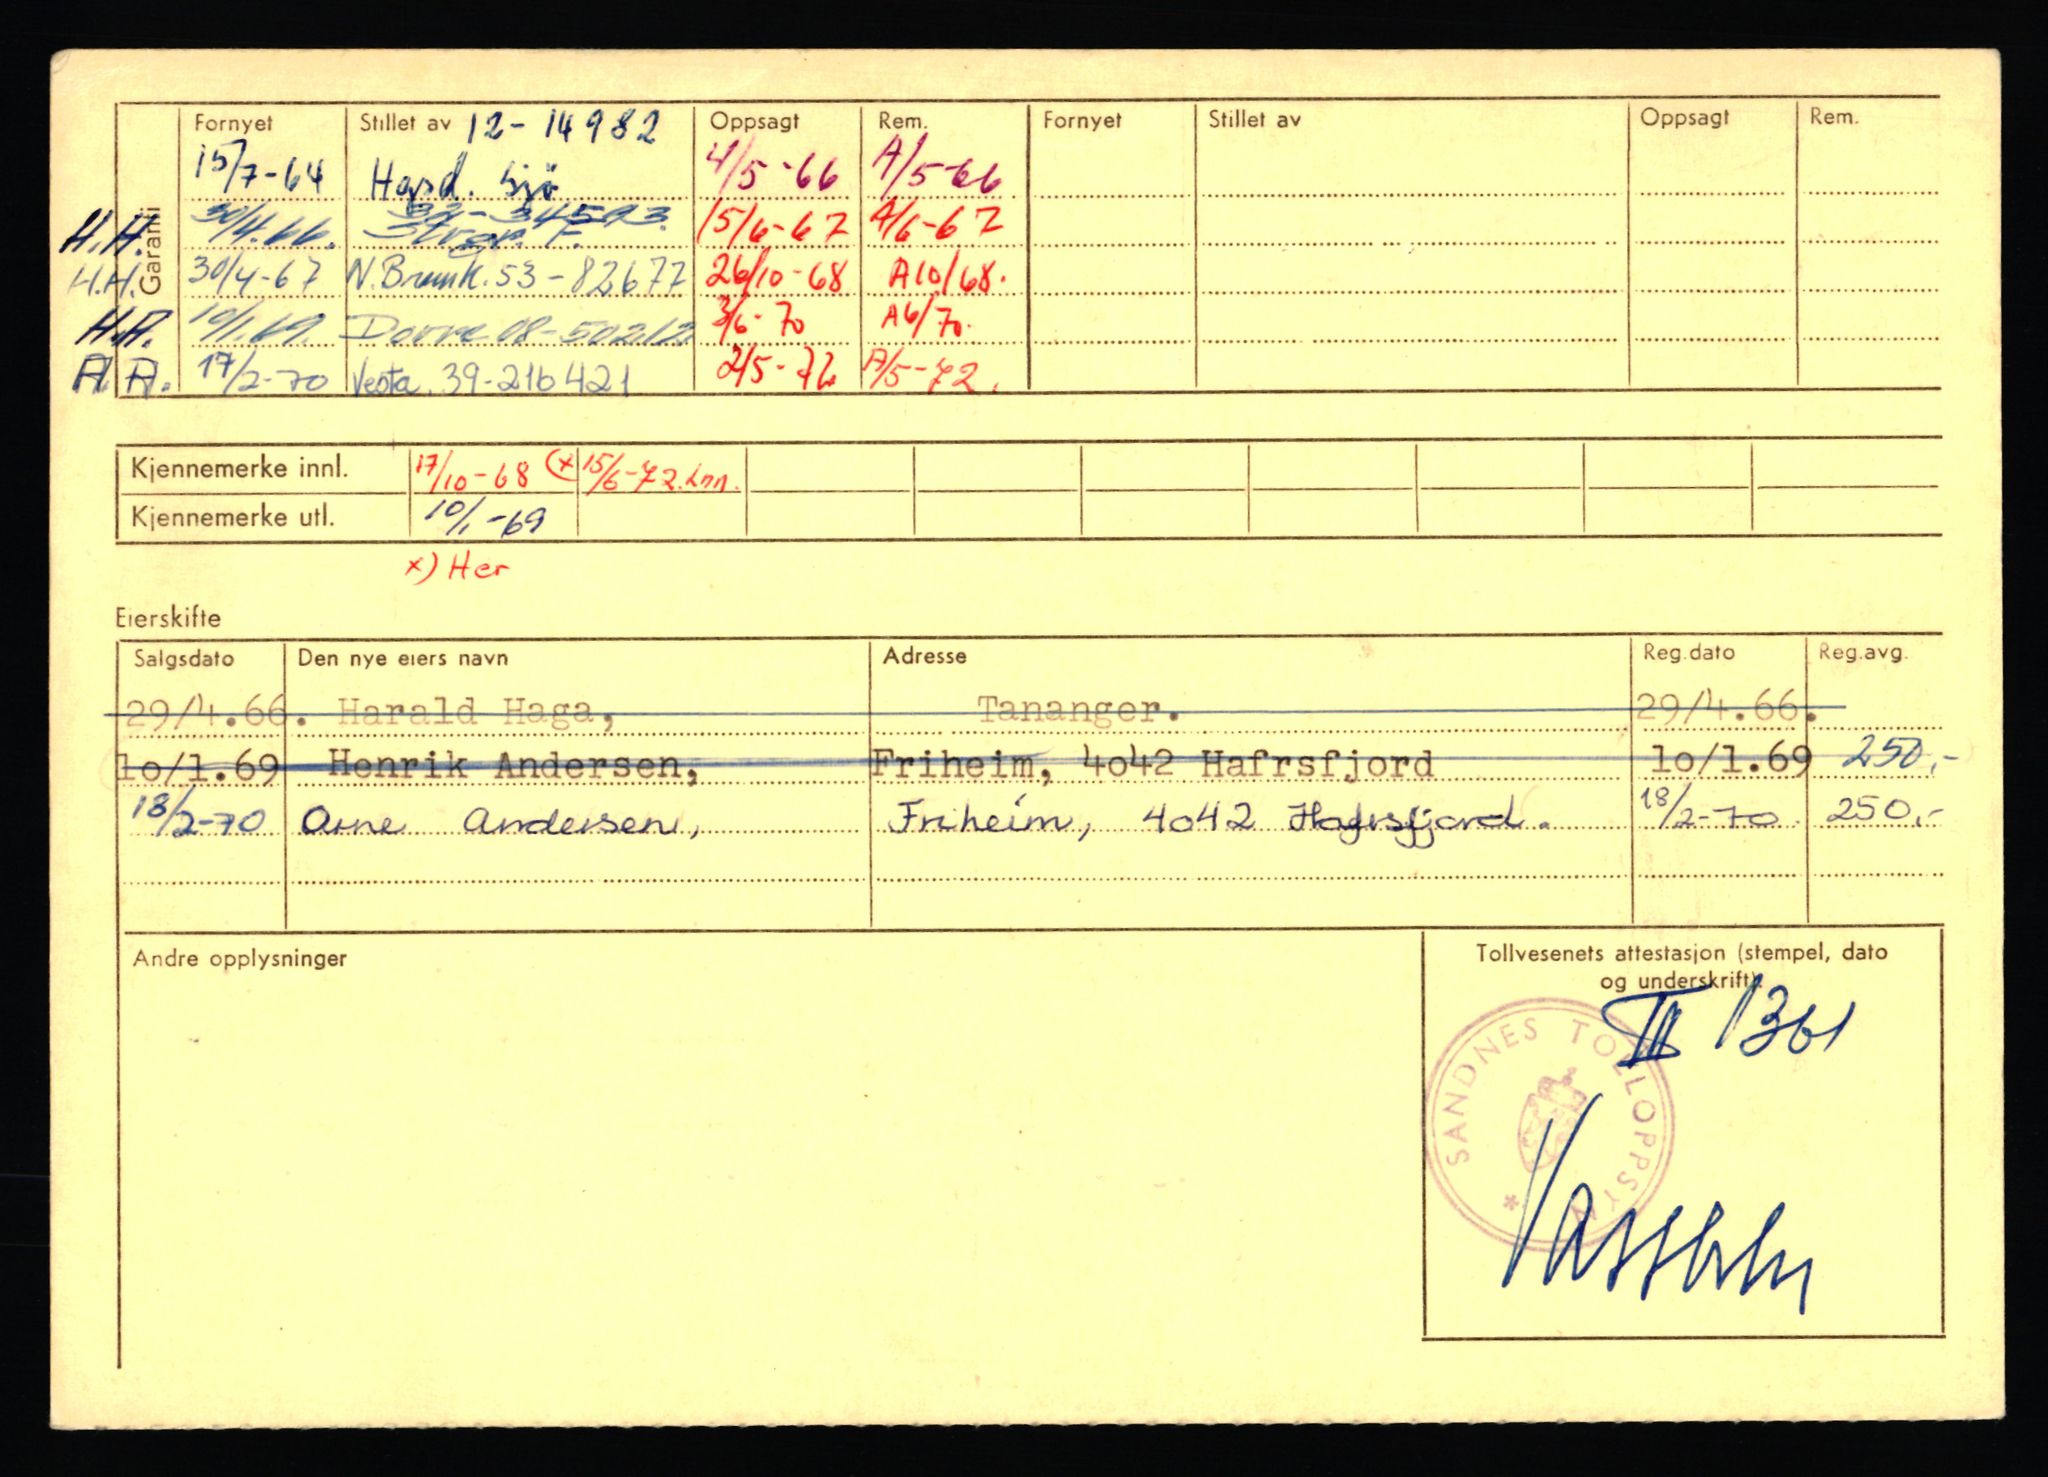 Fornyet Stillet av 12-14982 Oppsagt Rem. Fornyet Stillet av Oppsagt Rem.
Garanti
15/7-64 Hard. Sjø 4/5-66 A/5-66
H.H. 30/4.66. 33-34593. 15/6-67 A/6-67
H.H. 30/4-67 N.Brannk. 53-82677 26/10-68 A10/68.
H.A. 10/1.69. Dovre 08-50212 3/6-70 A6/70.
A.A. 17/2-70 Vesta. 39-216421 2/5-72 A/5-72.
Kjennemerke innl. 17/10-68 (x 15/6-72. Inn.
Kjennemerke utl. 10/1-69
x) Her
Eierskifte
Salgsdato Den nye eiers navn Adresse Reg.dato Reg.avg.
29/4.66. Harald Haga, Tananger. 29/4.66.
10/1.69 Henrik Andersen, Friheim, 4042 Hafrsfjord 10/1.69 250,-
18/2-70 Arne Andersen, Friheim, 4042 Hafrsfjord. 18/2-70. 250,-
Andre opplysninger
Tollvesenets attestasjon (stempel, dato
og underskrift).
III 1361
SANDNES TOLLOPPSYN *